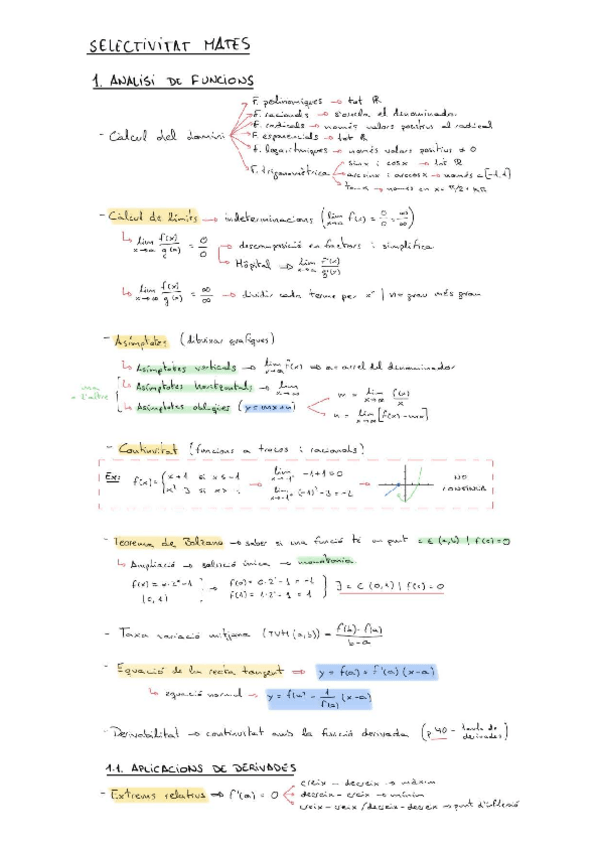 SELECTIVITAT MATES
1. ANALISI DE FUNCIONS
- Càlcul del domini
F. polinomiques → tot ℝ
F. racionals → s'exclou el denominador
F. radicals → només valors positius al radical
F. exponencials → tot ℝ
F. logaritmiques → només valors positius ≠ 0
F. trigonomètrica
sinx i cosx → tot ℝ
arcsinx i arccosx → només ∈ [-1,1]
tanx → només en x = π/2 + kπ
- Càlcul de límits → indeterminacions (lim x→a f(x) = 0/0 = ∞/∞)
↳ lim x→a f(x)/g(x) = 0/0
→ descomposició en factors i simplifica
Hôpital ⇒ lim x→a f'(x)/g'(x)
↳ lim x→∞ f(x)/g(x) = ∞/∞ → dividir cada terme per xⁿ | n = grau més gran
- Asímptotes (dibuixar gràfiques)
↳ Asímptotes verticals → lim x→a f(x) = ∞ a = arrel del denominador
↳ Asímptotes horitzontals → lim x→∞
↳ Asímptotes obliqües (y = mx + n)
m = lim x→∞ f(x)/x
n = lim x→∞ [f(x) - mx]
- Continuïtat (funcions a trossos i racionals)
Ex: f(x) =
x+1 si x ≤ -1
lim x→-1⁻ -1+1 = 0
lim x→-1⁺ (-1)² - 3 = -2
NO CONTINUA
- Teorema de Bolzano → saber si una funció té un punt c ∈ (a,b) | f(c) = 0
↳ Ampliació → solució única → monotonia
f(0) = 0·2⁰ - 1 = -1
f(1) = 1·2¹ - 1 = 1
(0,1)
∃ c ∈ (0,1) | f(c) = 0
- Taxa variació mitjana (TVM (a,b)) = f(b) - f(a) / b - a
- Equació de la recta tangent ⇒ y = f(a) = f'(a) (x-a)
↳ equació normal → y = f(a) - 1/f'(a) (x-a)
- Derivabilitat → continuïtat amb la funció derivada (p.40 - taula de derivades)
1.1. APLICACIONS DE DERIVADES
- Extrems relatius ⇒ f'(a) = 0
creix - decreix → màxim
decreix - creix → mínim
creix - creix / decreix - decreix → punt d'inflexió